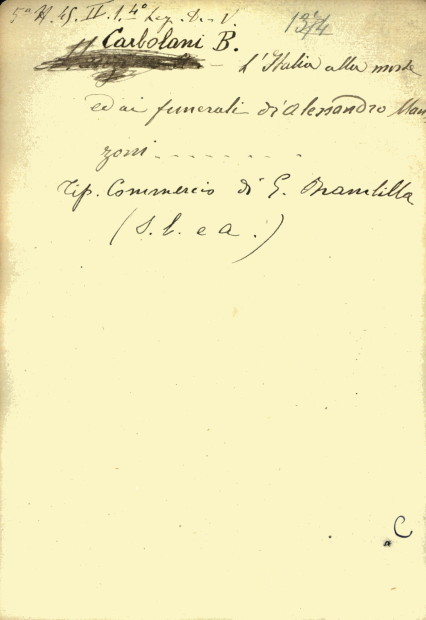 5ª A. 45. IV. 1. 4° Leg. D. V. 1374
Carbolani B.
- L'Italia alla morte
ed ai funerali di Alessandro Man
zoni - - - - - - - -
Tip. Commercio di G. Brambilla
(S. l. e a.)
C